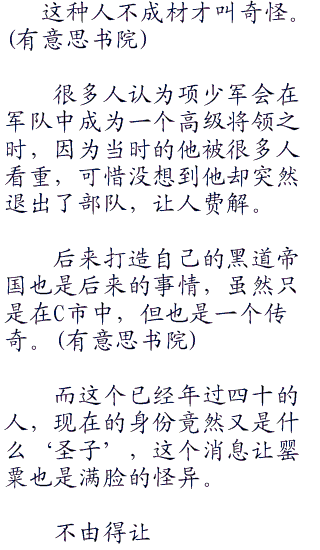 这种人不成材才叫奇怪。
(有意思书院)
很多人认为项少军会在
军队中成为一个高级将领之
时，因为当时的他被很多人
看重，可惜没想到他却突然
退出了部队，让人费解。
后来打造自己的黑道帝
国也是后来的事情，虽然只
是在C市中，但也是一个传
奇。(有意思书院)
而这个已经年过四十的
人，现在的身份竟然又是什
么‘圣子’，这个消息让罂
粟也是满脸的怪异。
不由得让